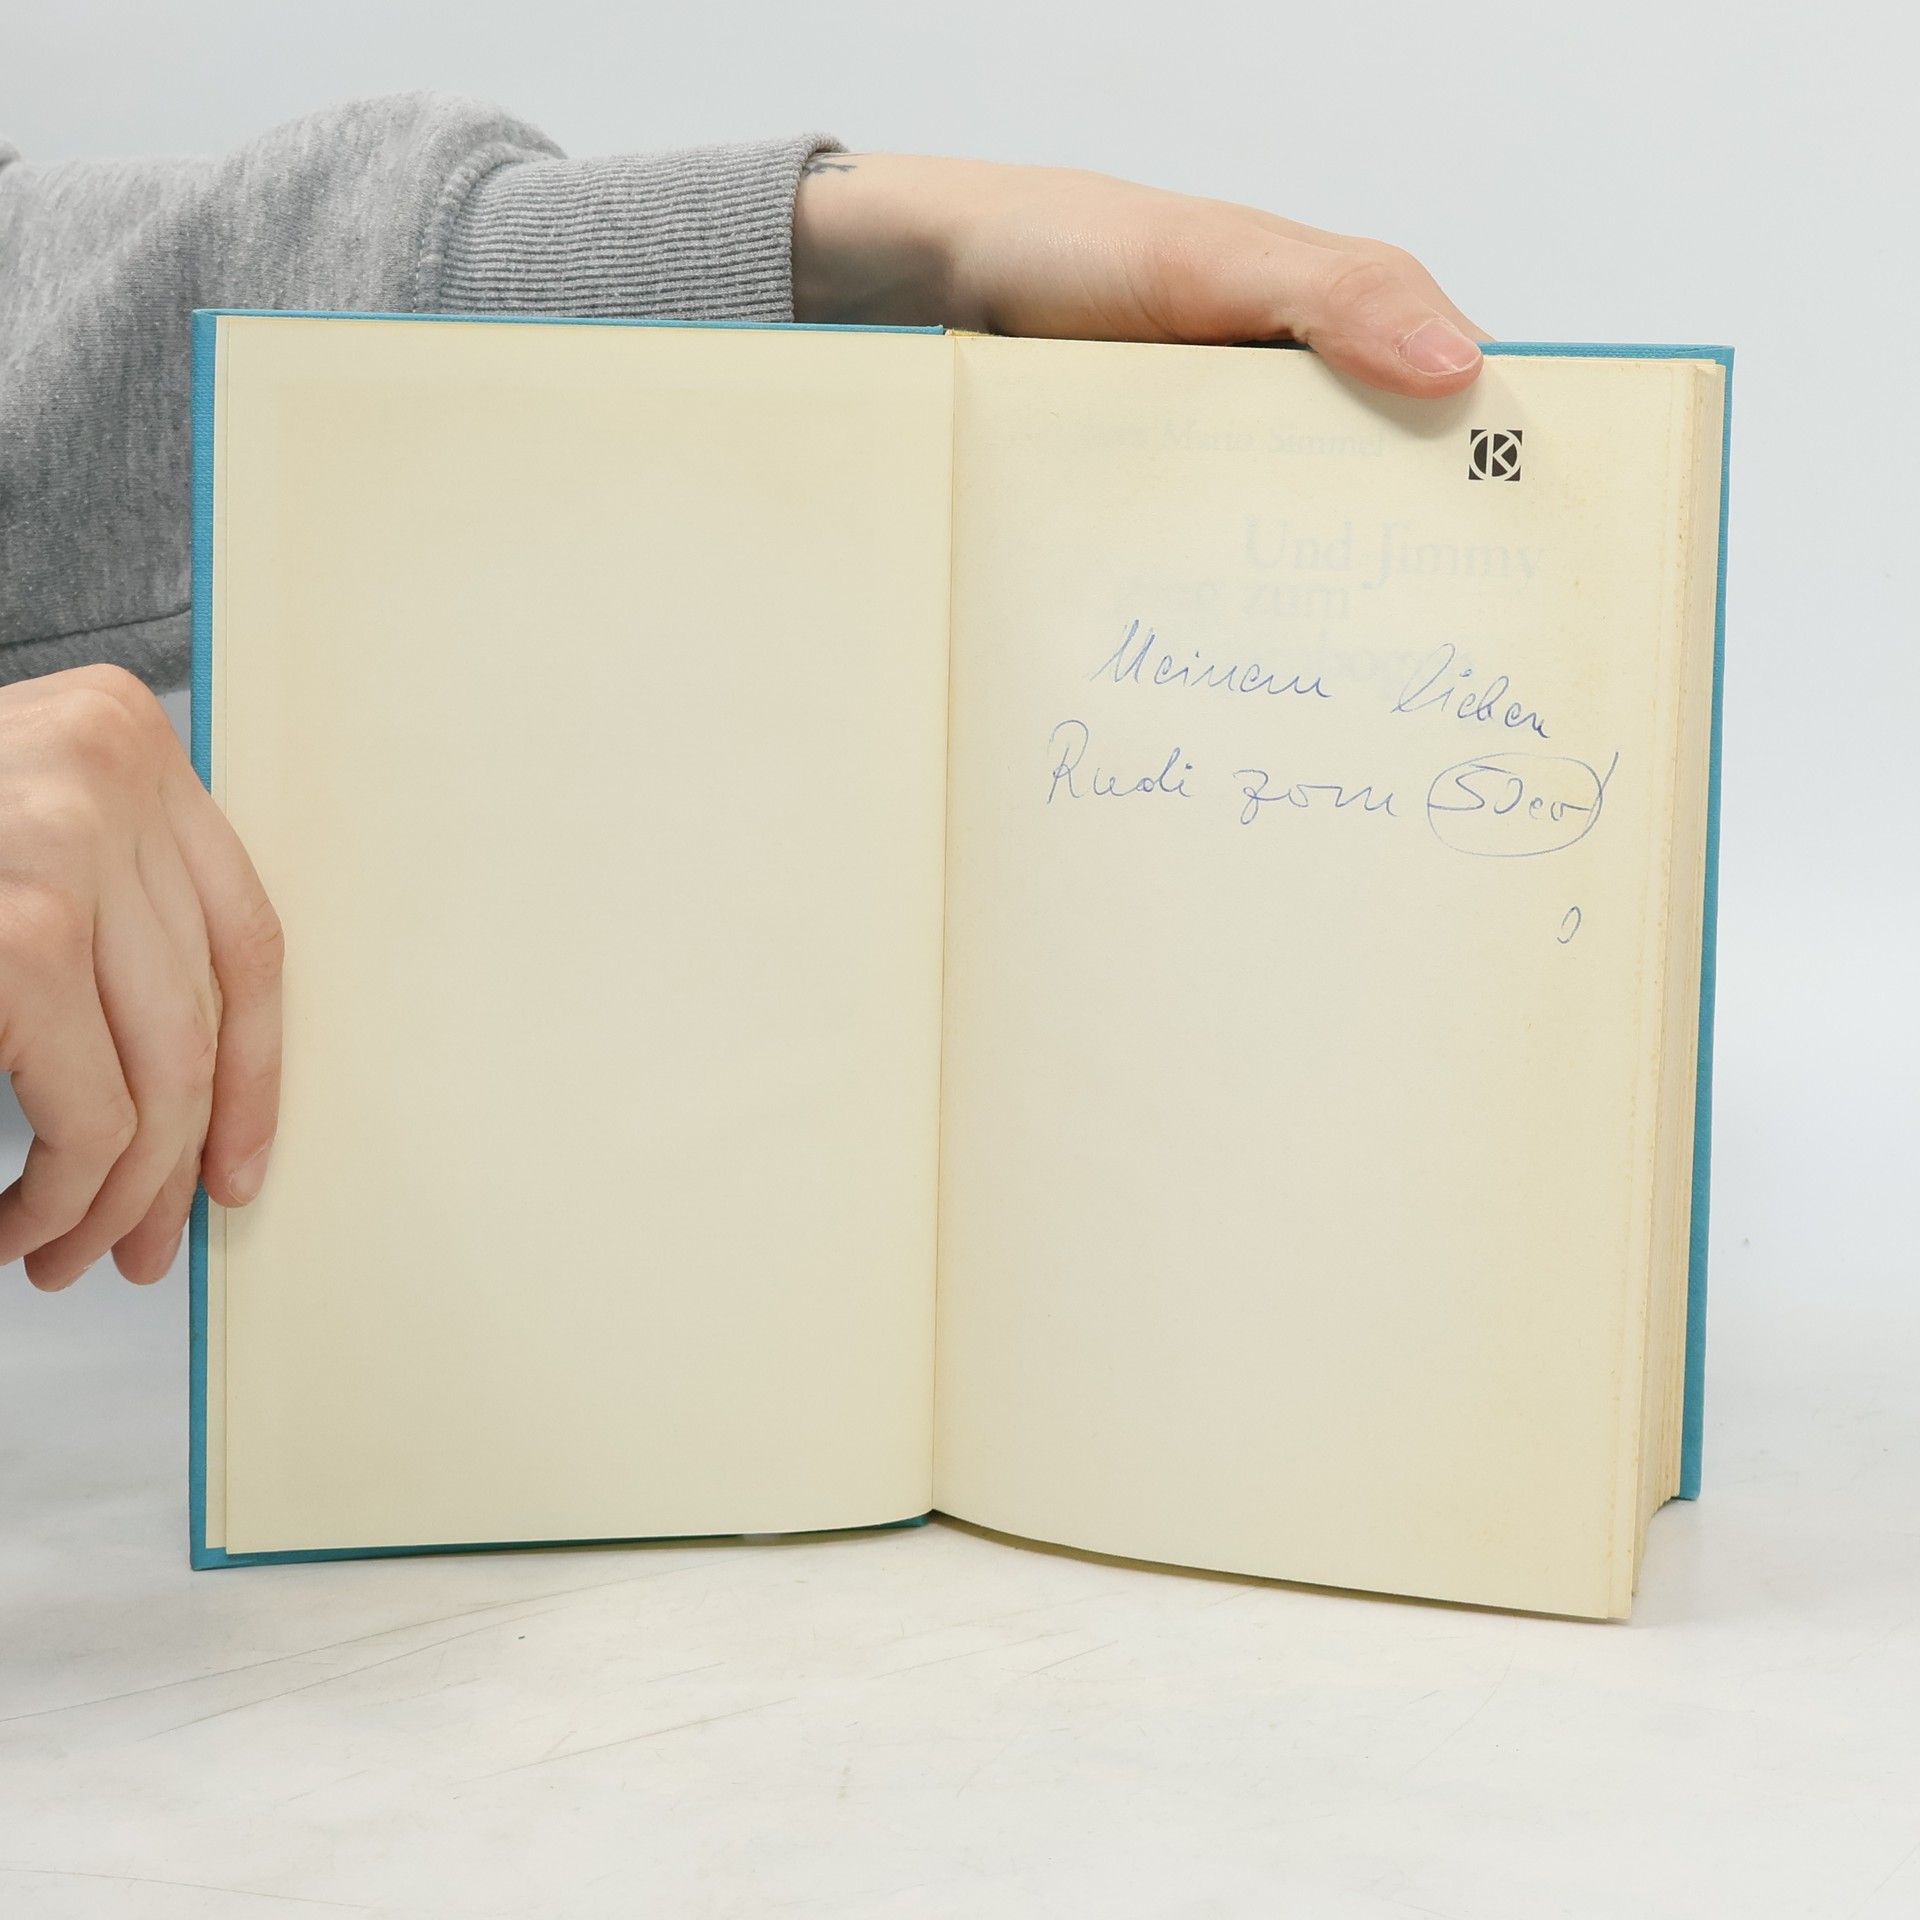 K
Maria Simmel
Und Jimmy
ging zum
Meinem lieben
Rudi zum 50er